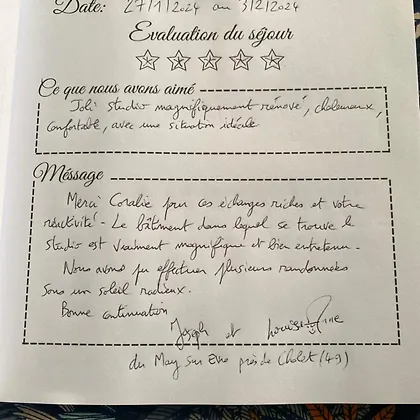 Date: 27/1/2024 au 3/2/2024
Evaluation du séjour
Ce que nous avons aimé
Joli studio magnifiquement rénové, chaleureux,
confortable, avec une situation idéale
Méssage
Merci Coralie pour ces échanges riches et votre
réactivité. Le bâtiment dans lequel se trouve le
studio est vraiment magnifique et bien entretenu.
Nous avons pu effectuer plusieurs randonnées
sous un soleil radieux.
Bonne continuation
Joseph et Louise-Anne
du May sur Evre près de Cholet (49)